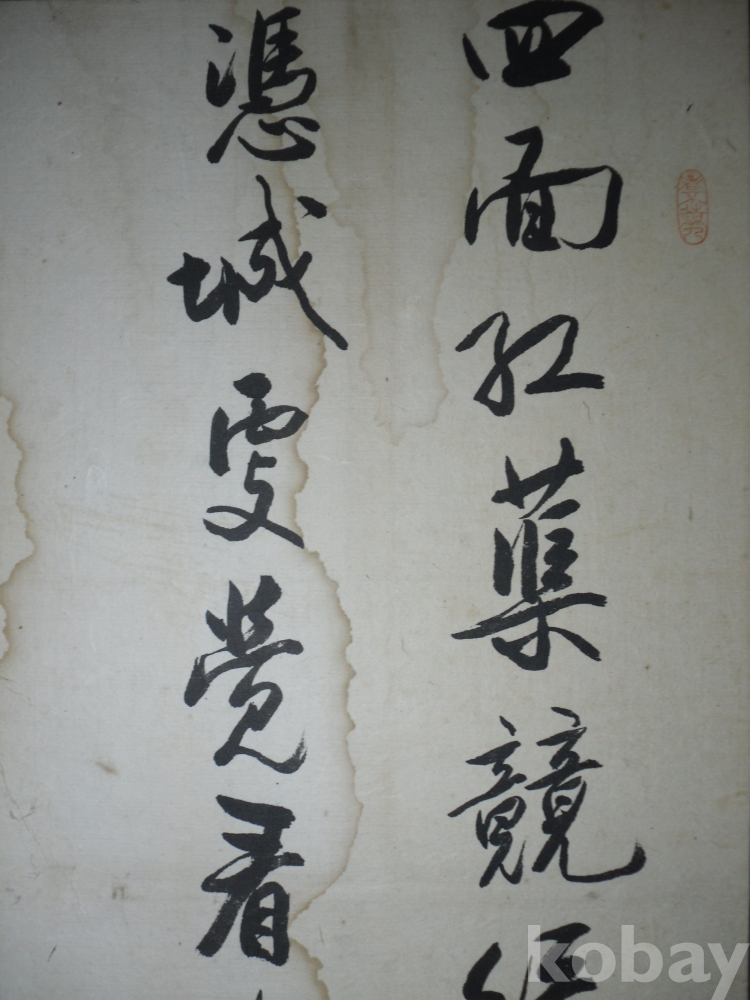 四面紅葉競
憑城覺看
kobay